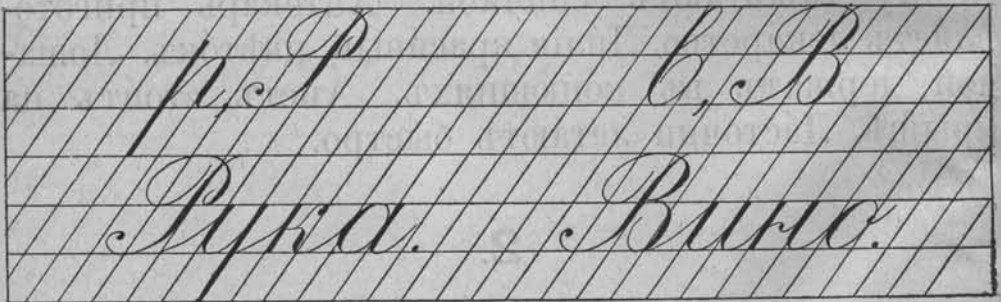 р, Р в, В
Рука. Вино.